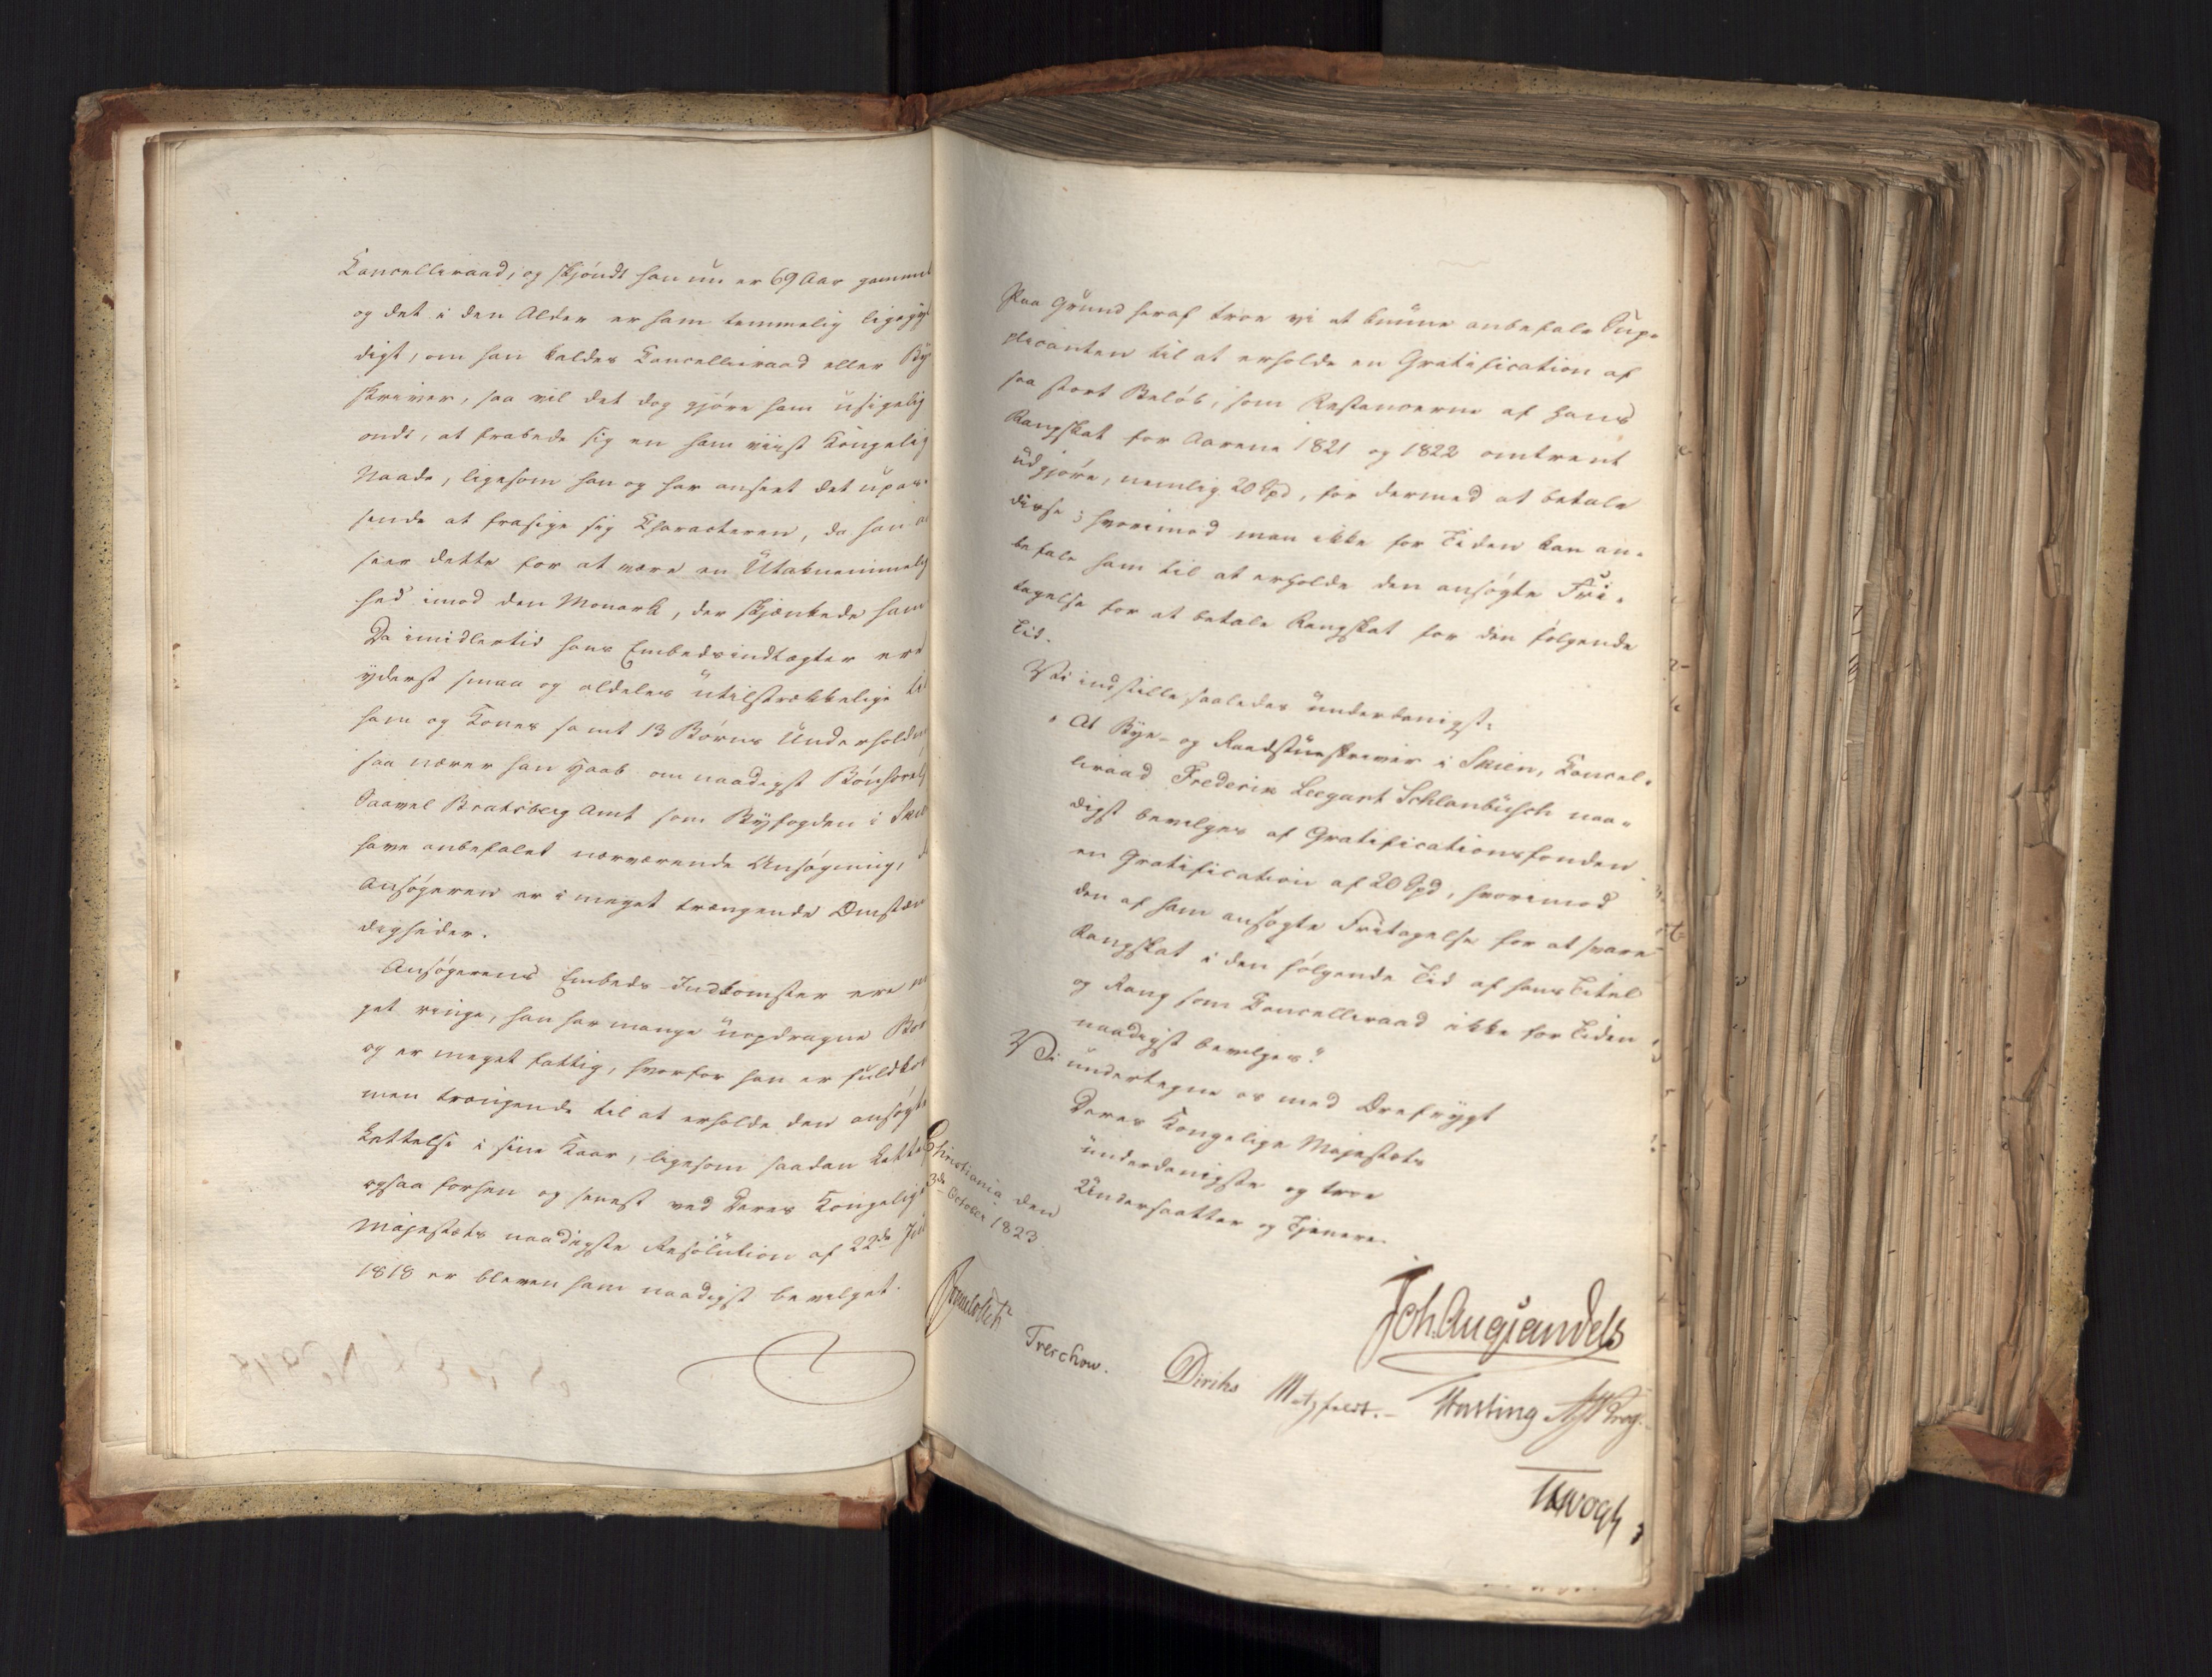 Cancelliraad; og skjøndt han nu er 69 Aar gammel
og det i den Alder er ham temmelig ligegyl
digt, om han kaldes Cancelliraad eller By
skriver, saa vil det dog gjøre ham usigelig
ondt, at frabede sig en ham viist Kongelig
Naade, ligesom han og har anseet det upas
sende at frasige sig Characteren, da han an
seer dette for at være en Utaknemmelig
hed imod den Monark, der skjænkede ham
Da imidlertid hans Embedsindtægter ere
yderst smaa og aldeles utilstrækkelige til
ham og Kones samt 13 Børns Underholdn
saa nærer han Haab om naadigst Bønhørel
Saavel Bratsberg Amt som Byfogden i Skie
have anbefalet nærværende Ansøgning, d
Ansøgeren er i meget trængende Omstæn
digheder.
Ansøgerens Embeds-Indkomster ere m
get ringe, han har mange uopdragne Bør
og er meget fattig, hvorfor han er fuldkom
men trængende til at erholde den ansøgte
Lettelse i sine Kaar, ligesom saadan Lettel
ogsaa forhen og senest ved Deres Kongelige
Majestæts naadigste Resolution af 22de Jul
1818 er bleven ham naadigst bevilget.
Paa Grund heraf troe vi at kunne anbefale Sup-
plicanten til at erholde en Gratification af
saa stort Beløb, som Restancerne af hans
Rangskat for Aarene 1821 og 1822 omtrent
udgjøre, nemlig 20 Spd, for dermed at betale
disse; hvorimod man ikke for Tiden kan an-
befale ham til at erholde den ansøgte Fri-
tagelse for at betale Rangskat for den følgende
Tid.
Vi indstille saaledes underdanigst:
"At Bye- og Raadstueskriver i Skien, Cancel-
liraad Frederik Leegart Schlanbusch naa-
digst bevilges af Gratificationsfonden
en Gratification af 20 Spd, hvorimod
den af ham ansøgte Fritagelse for at svare
Rangskat i den følgende Tid af hans Titel
og Rang som Cancelliraad ikke for Tiden
naadigst bevilges."
Vi undertegne os med Ærefrygt
Deres Kongelige Majestæts
underdanigste og troe
Undersaatter og Tjenere.
Christiania den
3de October 1823
Joh. Aug Sandels
Sommerhielm
Treschow. Diriks Motzfeldt. - Fasting